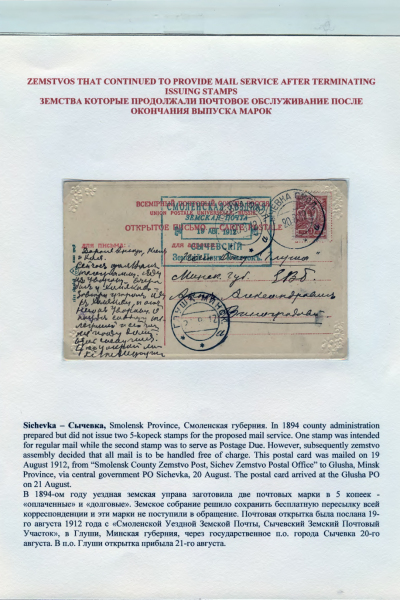 ZEMSTVOS THAT CONTINUED TO PROVIDE MAIL SERVICE AFTER TERMINATING
ISSUING STAMPS
ЗЕМСТВА КОТОРЫЕ ПРОДОЛЖАЛИ ПОЧТОВОЕ ОБСЛУЖИВАНИЕ ПОСЛЕ
ОКОНЧАНИЯ ВЫПУСКА МАРОК
СМОЛЕНСКАЯ УѢЗДНАЯ
ЗЕМСКАЯ-ПОЧТА
19 АВГ. 1912
СЫЧЕВСКІЙ
ВСЕМІРНЫЙ ПОЧТОВЫЙ СОЮЗЪ РОССІЯ
UNION POSTALE UNIVERSELLE
ОТКРЫТОЕ ПИСЬМО
ДЛЯ ПИСЬМА:
Минск. губ.
ГЛУША МИНСК.
Sichevka – Сычевка, Smolensk Province, Смоленская губерния. In 1894 county administration
prepared but did not issue two 5-kopeck stamps for the proposed mail service. One stamp was intended
for regular mail while the second stamp was to serve as Postage Due. However, subsequently zemstvo
assembly decided that all mail is to be handled free of charge. This postal card was mailed on 19
August 1912, from “Smolensk County Zemstvo Post, Sichev Zemstvo Postal Office” to Glusha, Minsk
Province, via central government PO Sichevka, 20 August. The postal card arrived at the Glusha PO
on 21 August.
В 1894-ом году уездная земская управа заготовила две почтовых марки в 5 копеек -
«оплаченные» и «долговые». Земское собрание решило сохранить бесплатную пересылку всей
корреспонденции и эти марки не поступили в обращение. Почтовая открытка была послана 19-
го августа 1912 года с «Смоленской Уездной Земской Почты, Сычевский Земский Почтовый
Участок», в Глуши, Минская губерния, через государственное п.о. города Сычевка 20-го
августа. В п.о. Глуши открытка прибыла 21-го августа.